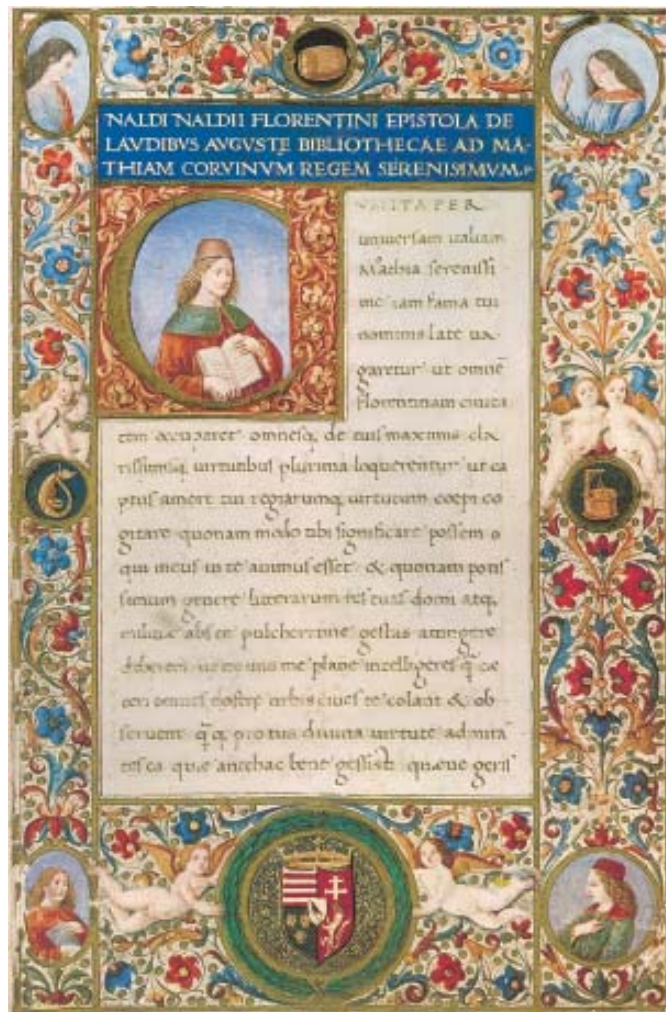 NALDI NALDII FLORENTINI EPISTOLA DE
LAVDIBVS AVGVSTĘ BIBLIOTHECAE AD MA-
THIAM CORVINVM REGEM SERENISIMVM
PER
universam italiam
Mathia serenissi
me iam fama tui
nominis late va
garetur ut omnē
florentinam civita
tem occuparet omnesq; de tuis maximis cla
rissimisq; virtutibus plurima loquerentur ut ca
ptus amore tui regiarumq; virtutum coepi co
gitare quonam modo tibi significare possem
qui meus in te animus esset & quonam potis
simum genere litterarum res tuas domi atq;
militiae abs te pulcherrime gestas attingere
deberem me plane intelligeres
omnes nostrę urbis cives te colant & ob
servent pro tua divina virtute admira
ea quae antehac bene gessisti quaeve geris